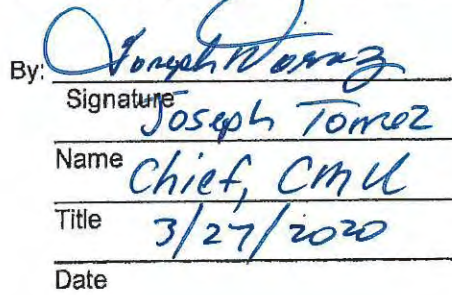 By: Joseph
Signature
Joseph Torrez
Name
Chief, CMU
Title
3/27/2020
Date